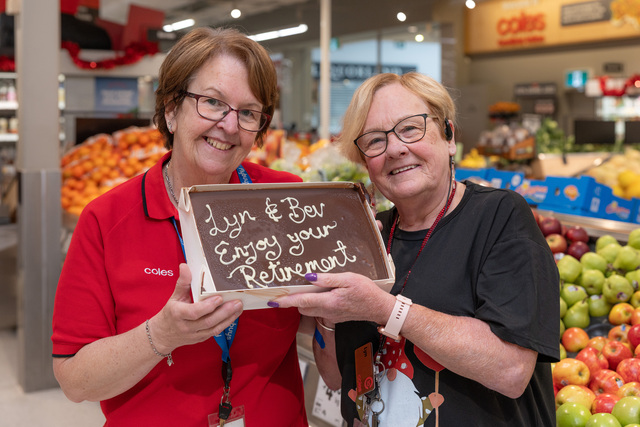 coles
Lyn & Bev
Enjoy your
Retirement
coles